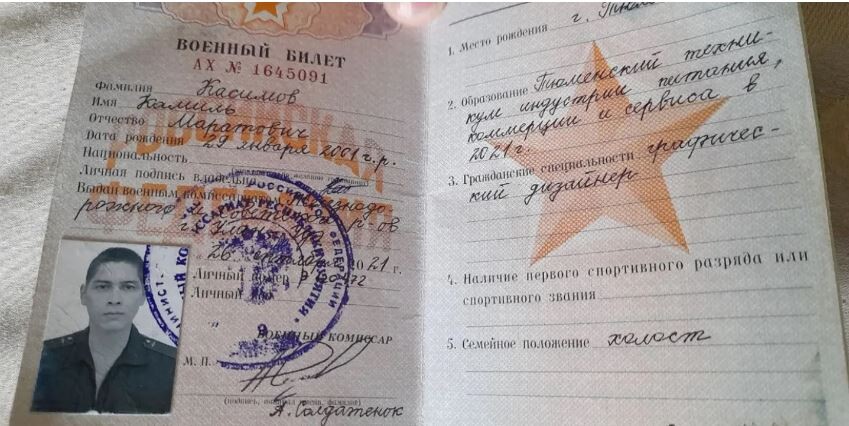 ВОЕННЫЙ БИЛЕТ
АХ № 1645091
Фамилия Касимов
Имя Камиль
Отчество Маратович
Дата рождения 29 января 2001 г.р.
Национальность
Личная подпись владельца
Выдан военным комиссариатом Железнодо-
рожного и Советского р-ов
г. Улан-Удэ
2021 г.
Личный номер
Личный
ВОЕННЫЙ КОМИССАР
М. П.
(подпись, фамилия)
А. Солдатенок
1. Место рождения г.
2. Образование Тюменский техни-
кум индустрии питания,
коммерции и сервиса в
2021 г.
3. Гражданские специальности графичес-
кий дизайнер
4. Наличие первого спортивного разряда или
спортивного звания
5. Семейное положение холост